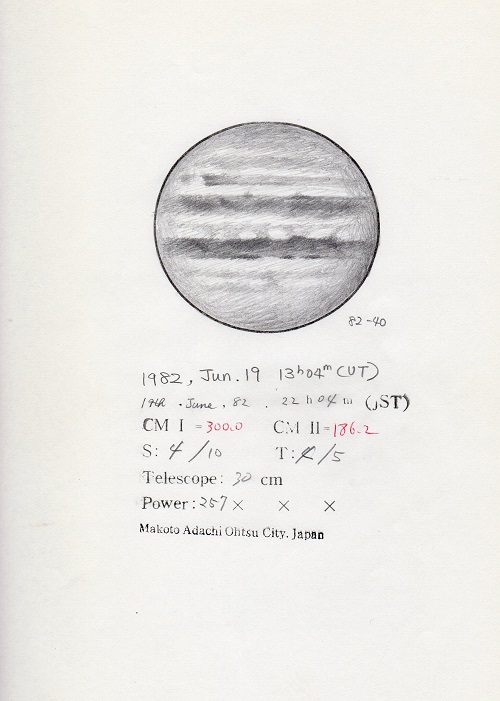 82-40
1982, Jun. 19 13h04m (UT)
19th . June , 82 . 22 h 04 m (JST)
CM I = 300.0 CM II = 186.2
S: 4 / 10 T: 4 / 5
Telescope: 30 cm
Power: 257 × × ×
Makoto Adachi Ohtsu City. Japan